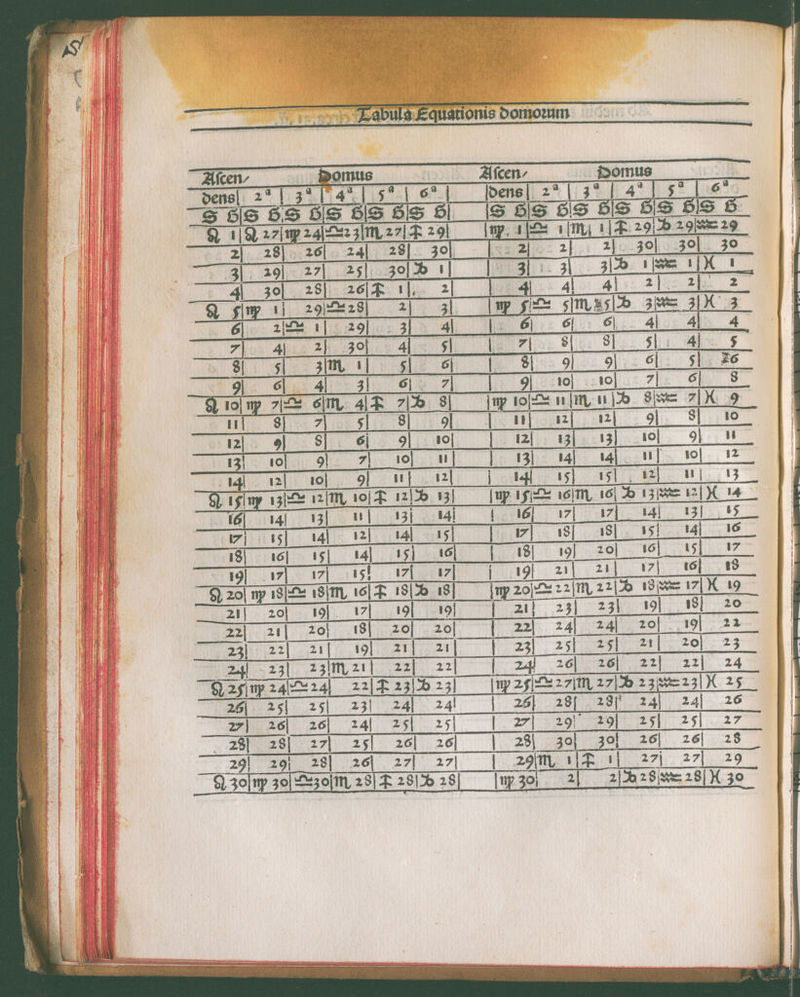 Tabula Equationis domorum
Aſcen⸗ Domus Aſcen⸗ Domus
dens 2ª 3ª 4ª 5ª 6ª dens 2ª 3ª 4ª 5ª 6ª
S G S G S G S G S G S G S G S G S G S G S G S G
♌ 1 ♌ 27 ♍ 24 ♎ 23 ♏ 27 ♐ 29 ♍ 1 ♎ 1 ♏ 1 ♐ 29 ♑ 29 ♒ 29
2 28 26 24 28 30 2 2 2 30 30 30
3 29 27 25 30 ♑ 1 3 3 3 ♑ 1 ♒ 1 ♓ 1
4 30 28 26 ♐ 1 2 4 4 4 2 2 2
♌ 5 ♍ 1 29 ♎ 28 2 3 ♍ 5 ♎ 5 ♏ 5 ♑ 3 ♒ 3 ♓ 3
6 2 ♎ 1 29 3 4 6 6 6 4 4 4
7 4 2 30 4 5 7 8 8 5 4 5
8 5 3 ♏ 1 5 6 8 9 9 6 5 26
9 6 4 3 6 7 9 10 10 7 6 8
♌ 10 ♍ 7 ♎ 6 ♏ 4 ♐ 7 ♑ 8 ♍ 10 ♎ 11 ♏ 11 ♑ 8 ♒ 7 ♓ 9
11 8 7 5 8 9 11 12 12 9 8 10
12 9 8 6 9 10 12 13 13 10 9 11
13 10 9 7 10 11 13 14 14 11 10 12
14 12 10 9 11 12 14 15 15 12 11 13
♌ 15 ♍ 13 ♎ 12 ♏ 10 ♐ 12 ♑ 13 ♍ 15 ♎ 16 ♏ 16 ♑ 13 ♒ 12 ♓ 14
16 14 13 11 13 14 16 17 17 14 13 15
17 15 14 12 14 15 17 18 18 15 14 16
18 16 15 14 15 16 18 19 20 16 15 17
19 17 17 15 17 17 19 21 21 17 16 18
♌ 20 ♍ 18 ♎ 18 ♏ 16 ♐ 18 ♑ 18 ♍ 20 ♎ 22 ♏ 22 ♑ 18 ♒ 17 ♓ 19
21 20 19 17 19 19 21 23 23 19 18 20
22 21 20 18 20 20 22 24 24 20 19 22
23 22 21 19 21 21 23 25 25 21 20 23
24 23 23 ♏ 21 22 22 24 26 26 22 22 24
♌ 25 ♍ 24 ♎ 24 22 ♐ 23 ♑ 23 ♍ 25 ♎ 27 ♏ 27 ♑ 23 ♒ 23 ♓ 25
26 25 25 23 24 24 26 28 28 24 24 26
27 26 26 24 25 25 27 29 29 25 25 27
28 28 27 25 26 26 28 30 30 26 26 28
29 29 28 26 27 27 29 ♏ 1 ♐ 1 27 27 29
♌ 30 ♍ 30 ♎ 30 ♏ 28 ♐ 28 ♑ 28 ♍ 30 2 2 ♑ 28 ♒ 28 ♓ 30